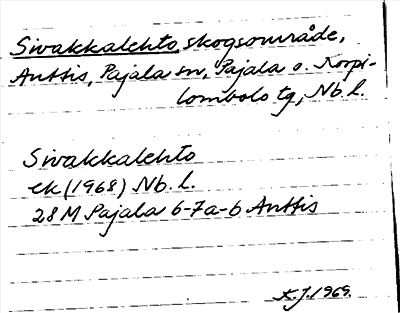 Sivakkalehto, skogsområde,
Anttis, Pajala sn, Pajala o. Korpi-
lombolo tg, Nb. l.
Sivakkalehto
ek (1968) Nb. l.
28 M Pajala 6-7a-b Anttis
K.J. 1969.